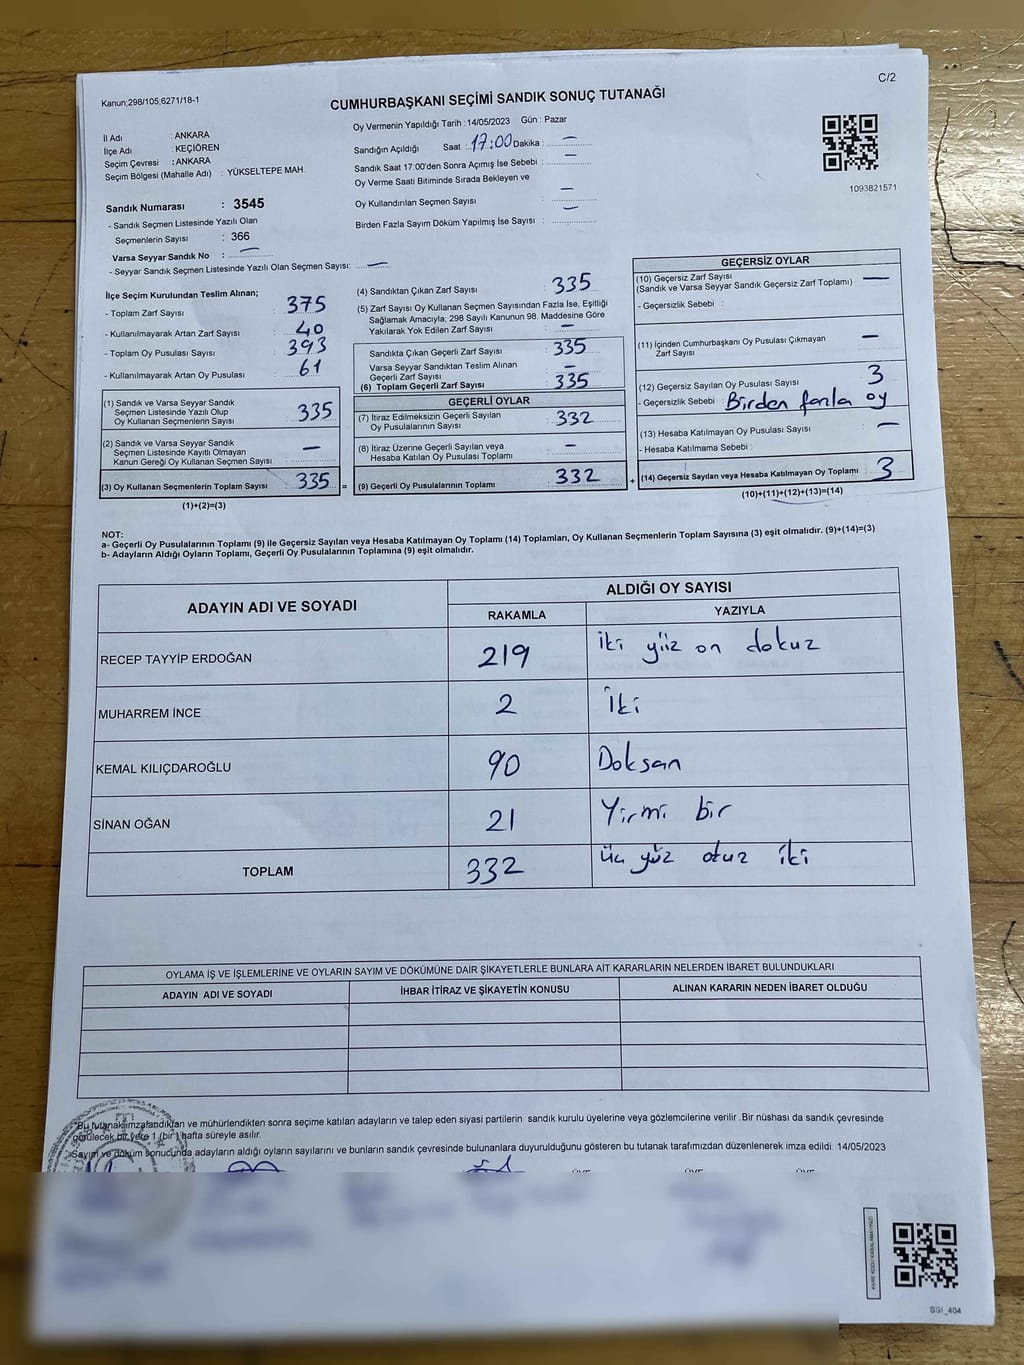 C/2
Kanun;298/105;6271/18-1
CUMHURBAŞKANI SEÇİMİ SANDIK SONUÇ TUTANAĞI
İl Adı : ANKARA
İlçe Adı : KEÇİÖREN
Seçim Çevresi : ANKARA
Seçim Bölgesi (Mahalle Adı) : YÜKSELTEPE MAH.
Sandık Numarası : 3545
- Sandık Seçmen Listesinde Yazılı Olan
Seçmenlerin Sayısı : 366
Varsa Seyyar Sandık No : —
- Seyyar Sandık Seçmen Listesinde Yazılı Olan Seçmen Sayısı: —
Oy Vermenin Yapıldığı Tarih : 14/05/2023 Gün : Pazar
Sandığın Açıldığı Saat : 17:00 Dakika : —
Sandık Saat 17:00'den Sonra Açımış İse Sebebi : —
Oy Verme Saati Bitiminde Sırada Bekleyen ve
Oy Kullandırılan Seçmen Sayısı : —
Birden Fazla Sayım Döküm Yapılmış İse Sayısı : —
1093821571
İlçe Seçim Kurulundan Teslim Alınan;
- Toplam Zarf Sayısı : 375
- Kullanılmayarak Artan Zarf Sayısı : 40
- Toplam Oy Pusulası Sayısı : 393
- Kullanılmayarak Artan Oy Pusulası : 61
(1) Sandık ve Varsa Seyyar Sandık
Seçmen Listesinde Yazılı Olup
Oy Kullanan Seçmenlerin Sayısı : 335
(2) Sandık ve Varsa Seyyar Sandık
Seçmen Listesinde Kayıtlı Olmayan
Kanun Gereği Oy Kullanan Seçmen Sayısı : —
(3) Oy Kullanan Seçmenlerin Toplam Sayısı : 335 =
(1)+(2)=(3)
(4) Sandıktan Çıkan Zarf Sayısı : 335
(5) Zarf Sayısı Oy Kullanan Seçmen Sayısından Fazla İse, Eşitliği
Sağlamak Amacıyla; 298 Sayılı Kanunun 98. Maddesine Göre
Yakılarak Yok Edilen Zarf Sayısı : —
Sandıkta Çıkan Geçerli Zarf Sayısı : 335
Varsa Seyyar Sandıktan Teslim Alınan
Geçerli Zarf Sayısı : —
(6) Toplam Geçerli Zarf Sayısı : 335
GEÇERLİ OYLAR
(7) İtiraz Edilmeksizin Geçerli Sayılan
Oy Pusulalarının Sayısı : 332
(8) İtiraz Üzerine Geçerli Sayılan veya
Hesaba Katılan Oy Pusulası Toplamı : —
(9) Geçerli Oy Pusulalarının Toplamı : 332 +
GEÇERSİZ OYLAR
(10) Geçersiz Zarf Sayısı
(Sandık ve Varsa Seyyar Sandık Geçersiz Zarf Toplamı) : —
- Geçersizlik Sebebi :
(11) İçinden Cumhurbaşkanı Oy Pusulası Çıkmayan
Zarf Sayısı : —
(12) Geçersiz Sayılan Oy Pusulası Sayısı : 3
- Geçersizlik Sebebi : Birden fazla oy
(13) Hesaba Katılmayan Oy Pusulası Sayısı : —
- Hesaba Katılmama Sebebi :
(14) Geçersiz Sayılan veya Hesaba Katılmayan Oy Toplamı : 3
(10)+(11)+(12)+(13)=(14)
NOT:
a- Geçerli Oy Pusulalarının Toplamı (9) ile Geçersiz Sayılan veya Hesaba Katılmayan Oy Toplamı (14) Toplamları, Oy Kullanan Seçmenlerin Toplam Sayısına (3) eşit olmalıdır. (9)+(14)=(3)
b- Adayların Aldığı Oyların Toplamı, Geçerli Oy Pusulalarının Toplamına (9) eşit olmalıdır.
ADAYIN ADI VE SOYADI ALDIĞI OY SAYISI
RAKAMLA YAZIYLA
RECEP TAYYİP ERDOĞAN 219 iki yüz on dokuz
MUHARREM İNCE 2 İki
KEMAL KILIÇDAROĞLU 90 Doksan
SİNAN OĞAN 21 Yirmi bir
TOPLAM 332 üç yüz otuz iki
OYLAMA İŞ VE İŞLEMLERİNE VE OYLARIN SAYIM VE DÖKÜMÜNE DAİR ŞİKAYETLERLE BUNLARA AİT KARARLARIN NELERDEN İBARET BULUNDUKLARI
ADAYIN ADI VE SOYADI İHBAR İTİRAZ VE ŞİKAYETİN KONUSU ALINAN KARARIN NEDEN İBARET OLDUĞU
*Bu tutanak imzalandıktan ve mühürlendikten sonra seçime katılan adayların ve talep eden siyasi partilerin sandık kurulu üyelerine veya gözlemcilerine verilir .Bir nüshası da sandık çevresinde
görülecek bir yere 1 (bir ) hafta süreyle asılır.
>Sayım ve döküm sonucunda adayların aldığı oyların sayılarını ve bunların sandık çevresinde bulunanlara duyurulduğunu gösteren bu tutanak tarafımızdan düzenlenerek imza edildi. 14/05/2023
KARE KODU KARALAMAYINIZ!
SSI_404